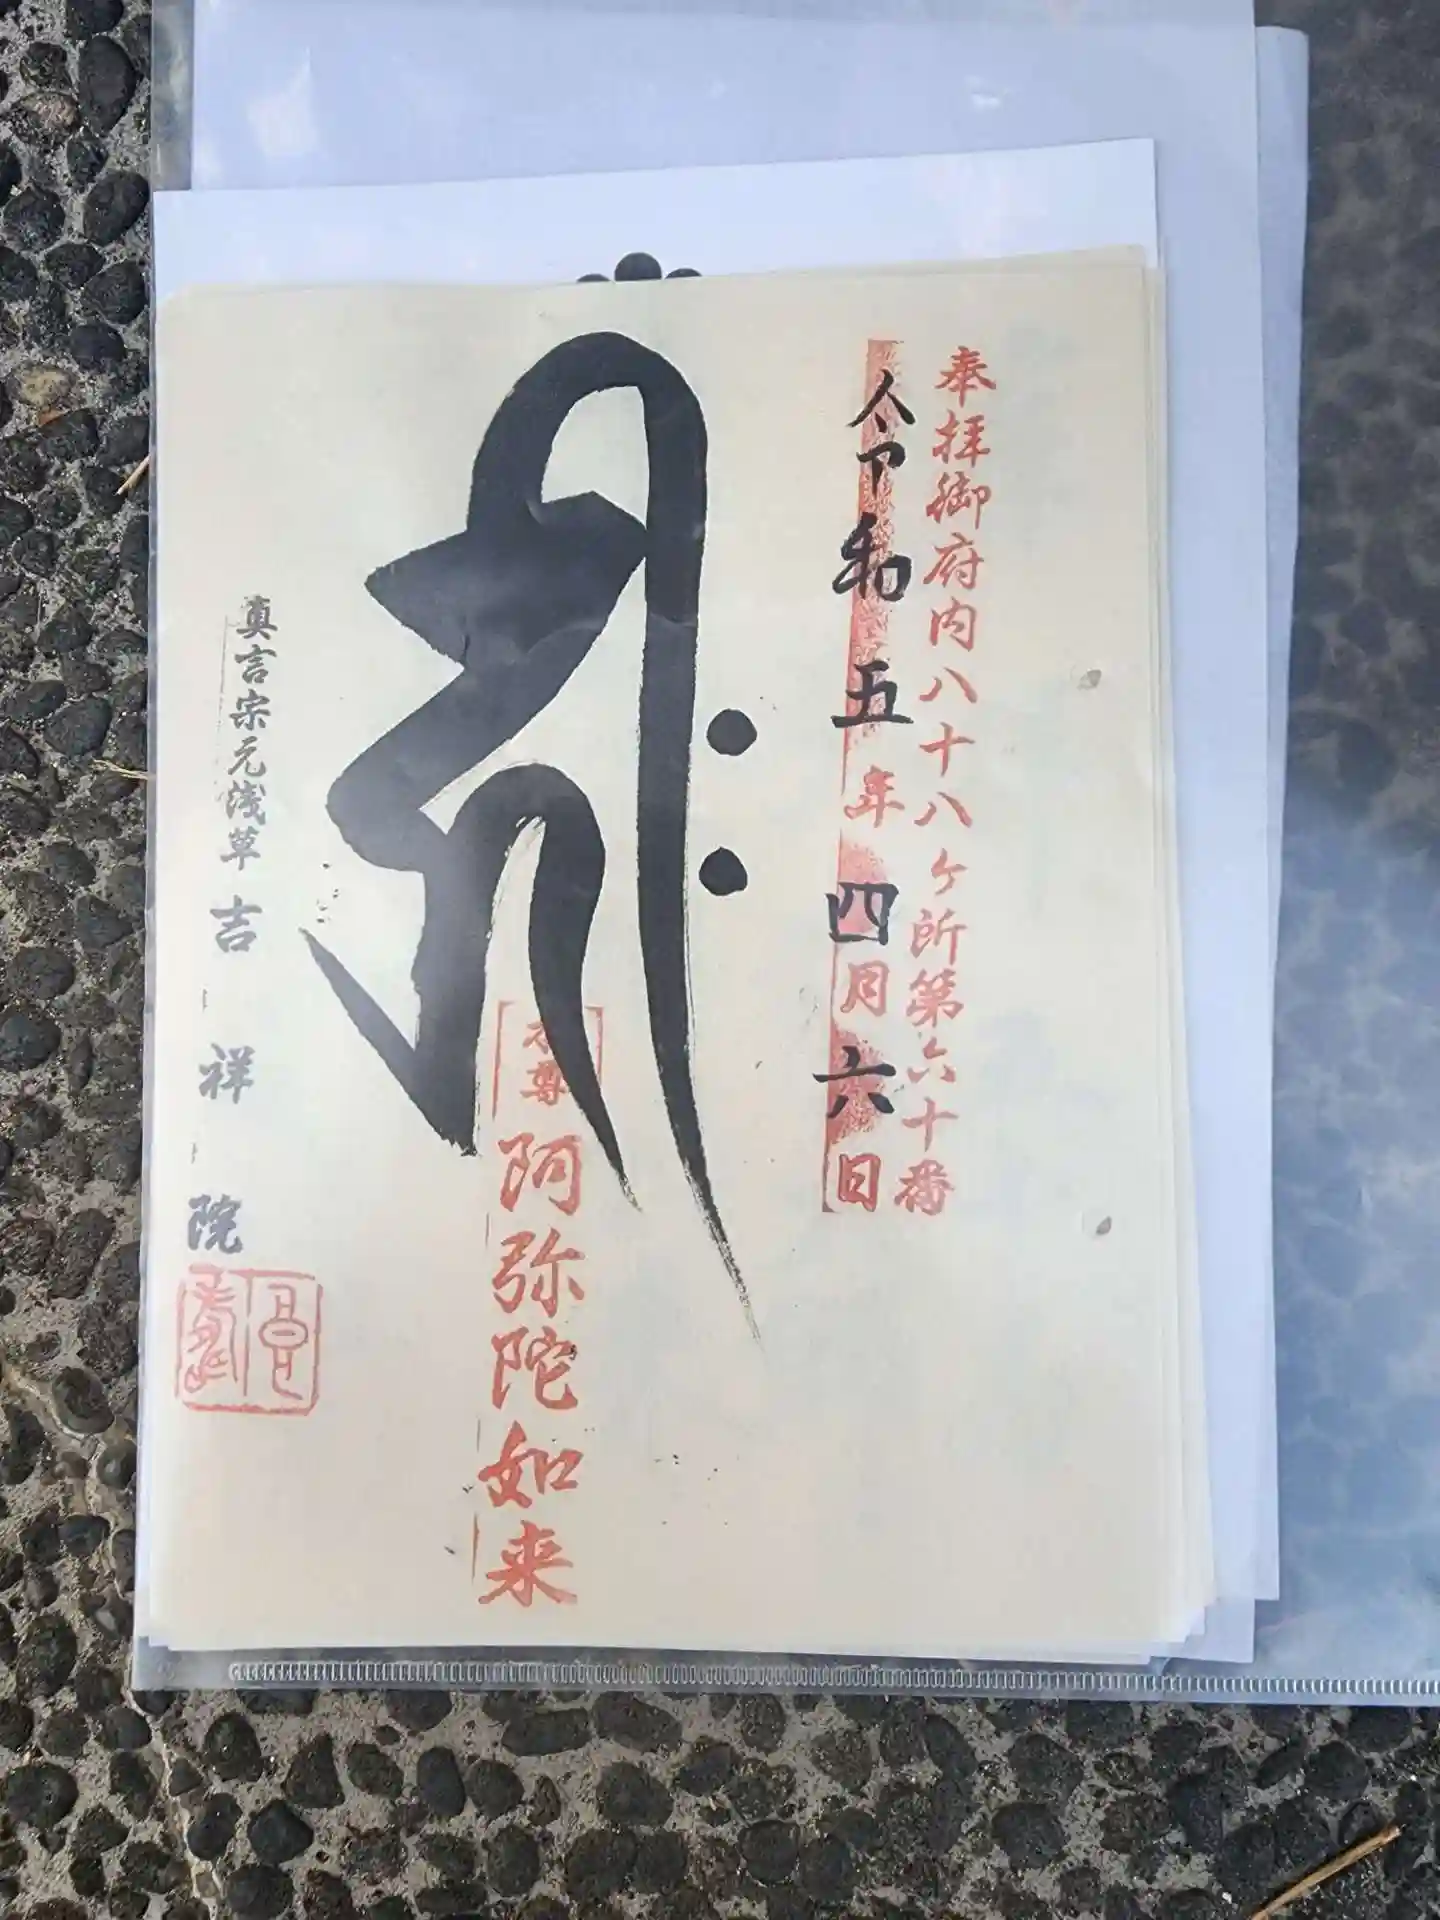 奉拝御府内八十八ケ所第六十番
令和五年四月六日
𑖮𑖿𑖨𑖱𑖾
本尊 阿弥陀如来
真言宗元浅草 吉祥院